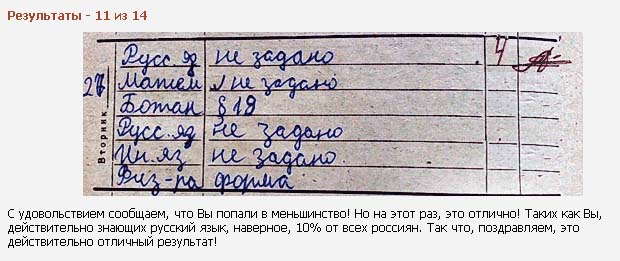 Результаты - 11 из 14
Русс яз не задано 4
Матем не задано
Ботан § 19
Русс. яз не задано
Ин. яз не задано
Физ-ра форма
27
Вторник
С удовольствием сообщаем, что Вы попали в меньшинство! Но на этот раз, это отлично! Таких как Вы,
действительно знающих русский язык, наверное, 10% от всех россиян. Так что, поздравляем, это
действительно отличный результат!